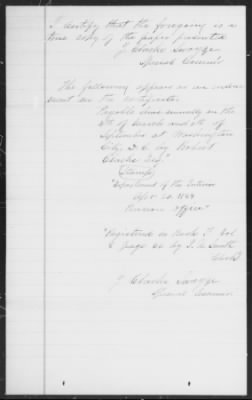 I certify that the foregoing is a
true copy of the paper presented
J. Clarke Swayze
Special Examr
The following appears as an indorse-
ment on the certificate.
Payable semi annually on the
4th of March and 4th of
September at Washington
City, D. C. by Robert
Clarke Esq."
(Stamp)
"Department of the Interior
Apr 20
Pension Office"
"Registered in Book Vol
page 60 by Smith
Clerk"
J. Clarke Swayze
Special Examiner